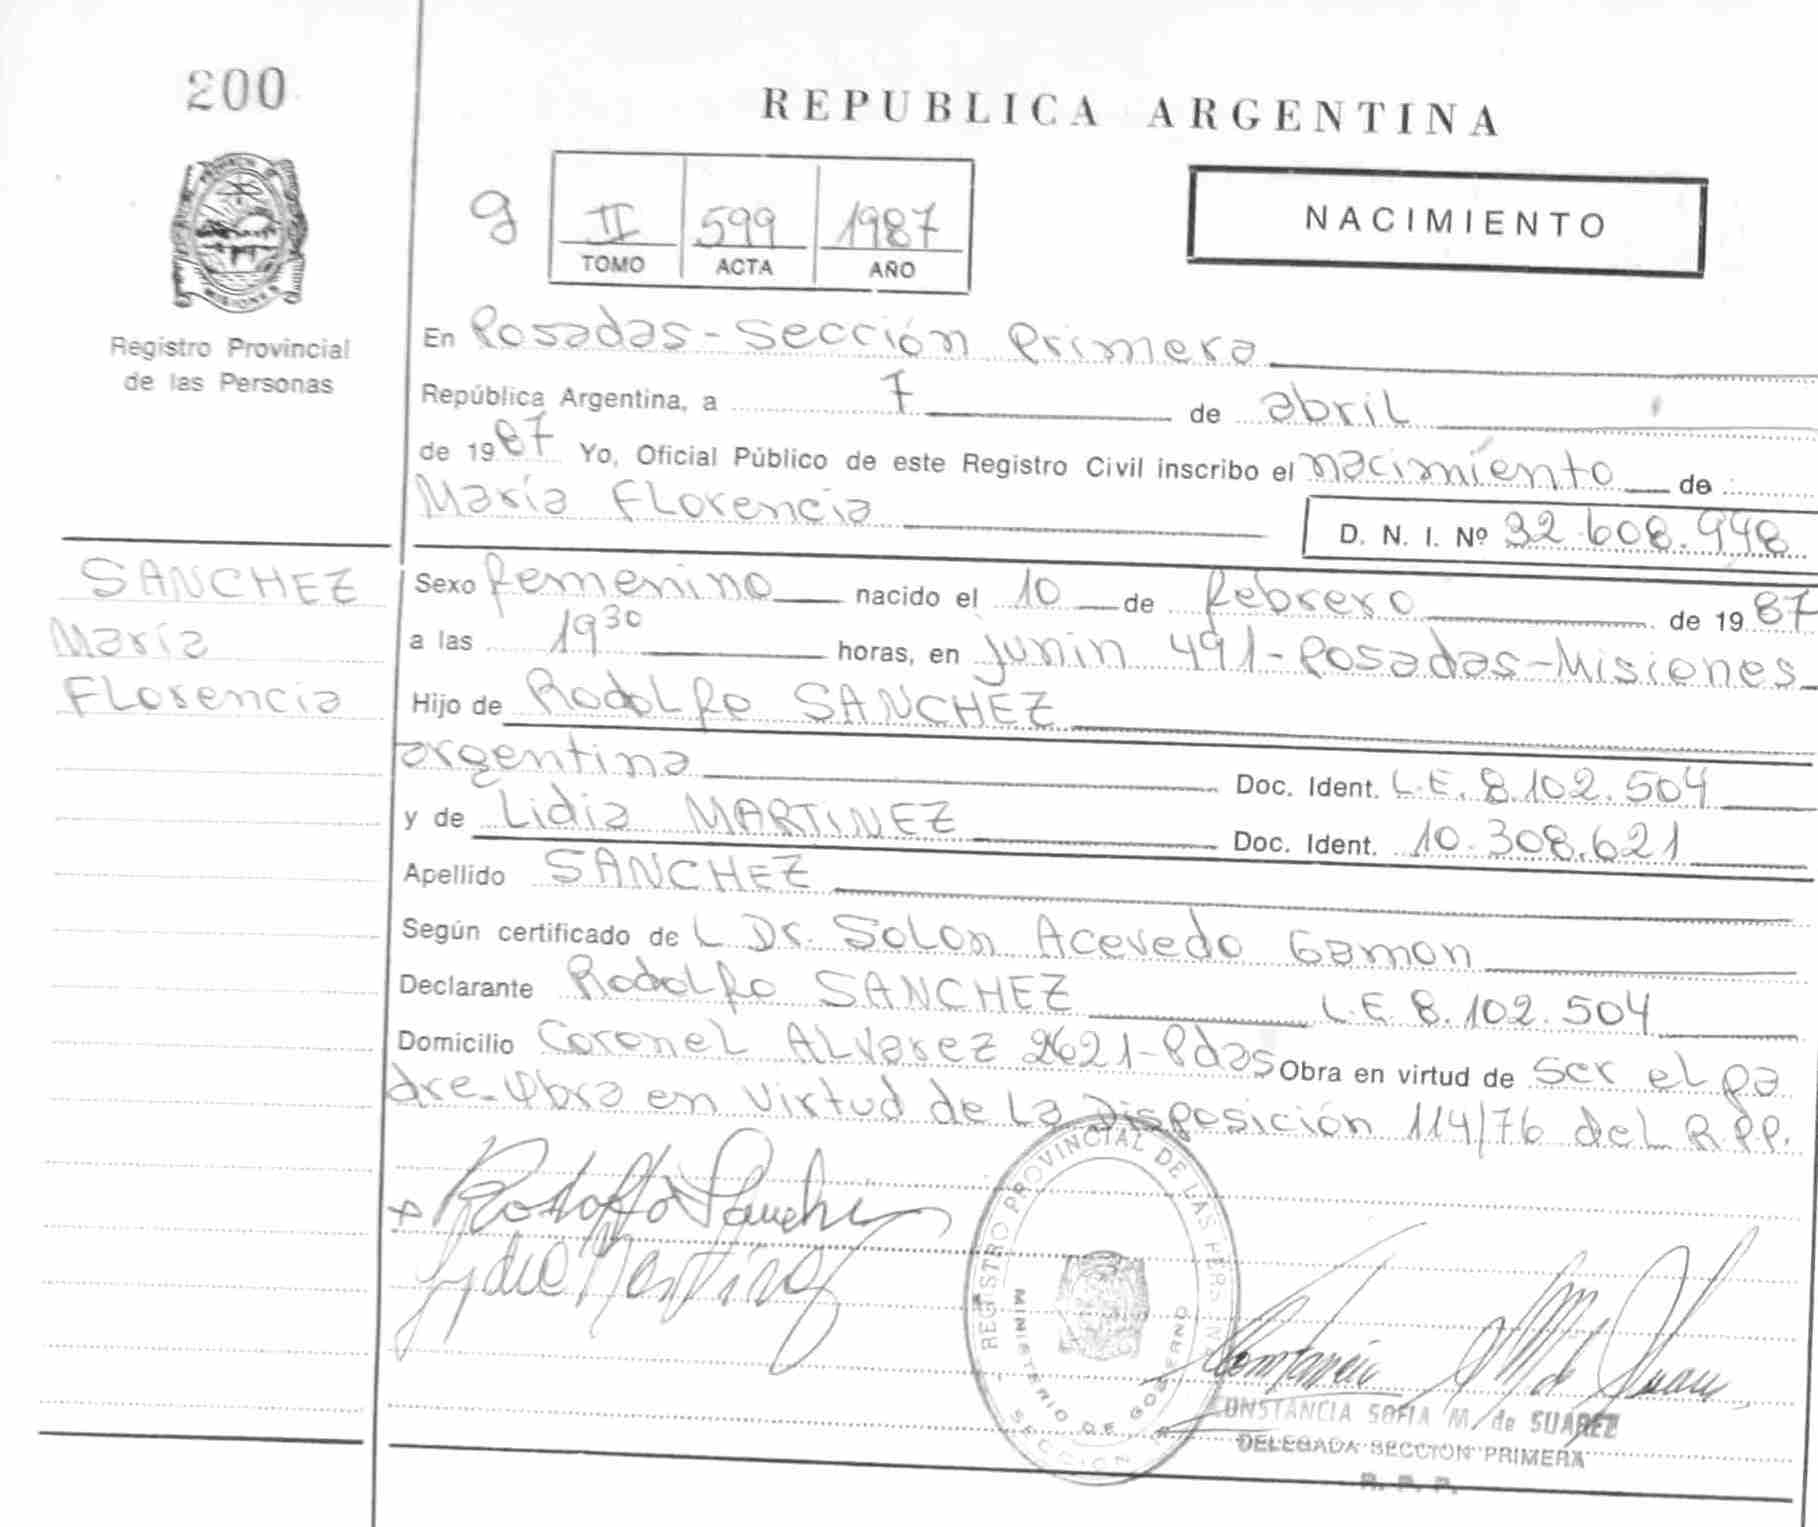 200
REPUBLICA ARGENTINA
9
II 599 1987
TOMO ACTA AÑO
NACIMIENTO
PROVINCIA
MISIONES
Registro Provincial
de las Personas
En Posadas-Sección Primera
República Argentina, a 7 de abril
de 1987 Yo, Oficial Público de este Registro Civil inscribo el nacimiento de
María Florencia
D. N. I. Nº 32.608.948
SANCHEZ
María
Florencia
Sexo femenino nacido el 10 de febrero de 1987
a las 19 30 horas, en junin 491-Posadas-Misiones
Hijo de Rodolfo SANCHEZ
argentina Doc. Ident. L.E. 8.102.504
y de Lidia MARTINEZ Doc. Ident. 10.308.621
Apellido SANCHEZ
Según certificado de L Dr. Solon Acevedo Gamon
Declarante Rodolfo SANCHEZ L.E. 8.102.504
Domicilio Coronel Alvarez 2621-Pdas Obra en virtud de ser el pa
dre-Obra en virtud de la Disposición 114/76 del R.P.P.
Rodolfo Sanchez
REGISTRO PROVINCIAL DE LAS PERSONAS
MINISTERIO DE GOBIERNO
SECCION
CONSTANCIA SOFIA M. de SUAREZ
DELEGADA SECCION PRIMERA
R. P. P.